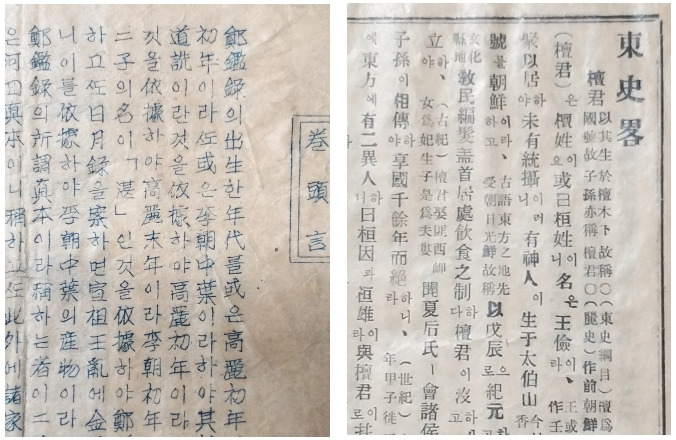 卷頭言
鄭鑑錄의出生한年代를或은高麗初年
初年이라또或은李朝中葉이라하야其
道詵이란것을依據하야高麗初年이라
것을依據하야高麗末年이라李朝初年
二子의名이「湛」인것을依據하야鄭
하고또日月錄을案하면宣祖壬亂에金
니이를依據하야李朝中葉의産物이라
鄭鑑錄의所謂眞本이라稱하는者이
眞本이니稱하고또此外에諸家
東史畧
檀君 以其生於檀木下故稱○(東史綱目)檀爲
國號故子孫亦稱檀君○(麗史)作前朝鮮
(檀君)은檀姓이요或曰桓姓이니名은王儉이라、王或作壬
聚以居하야未有統攝이러니有神人이生于太伯山 今 香
號를朝鮮이라하고、古語東方之地先受朝日光鮮故稱 以戊辰으로紀元
文化縣地 敎民編髮盖首居處飮食之制하다檀君이沒하고
立하야、(古紀)檀君娶匪西岬女爲妃生子是爲夫婁 聞夏后氏ㅣ會諸侯
子孫이相傳하야享國千餘年而絶하니라、(世紀) 年甲子徒
에東方에有二異人하니曰桓因과桓雄이라與檀君으로